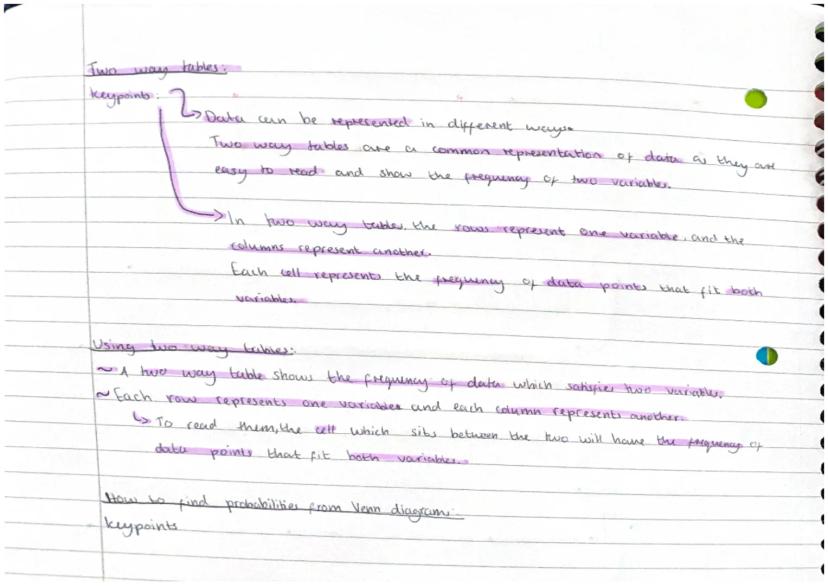 Two way tables:
keypoints:
Data can be represented in different ways.
Two way tables are a common representation of data as they are
easy to read and show the frequency of two variables.
In two way tables, the rows represent one variable, and the
columns represent another.
Each cell represents the frequency of data points that fit both
variables.
Using two way tables:
~ A two way table shows the frequency of data which satisfies two variables.
~ Each row represents one variables and each column represents another.
↳ To read them, the cell which sits between the two will have the frequency of
data points that fit both variables.
How to find probabilities from Venn diagrams:
keypoints